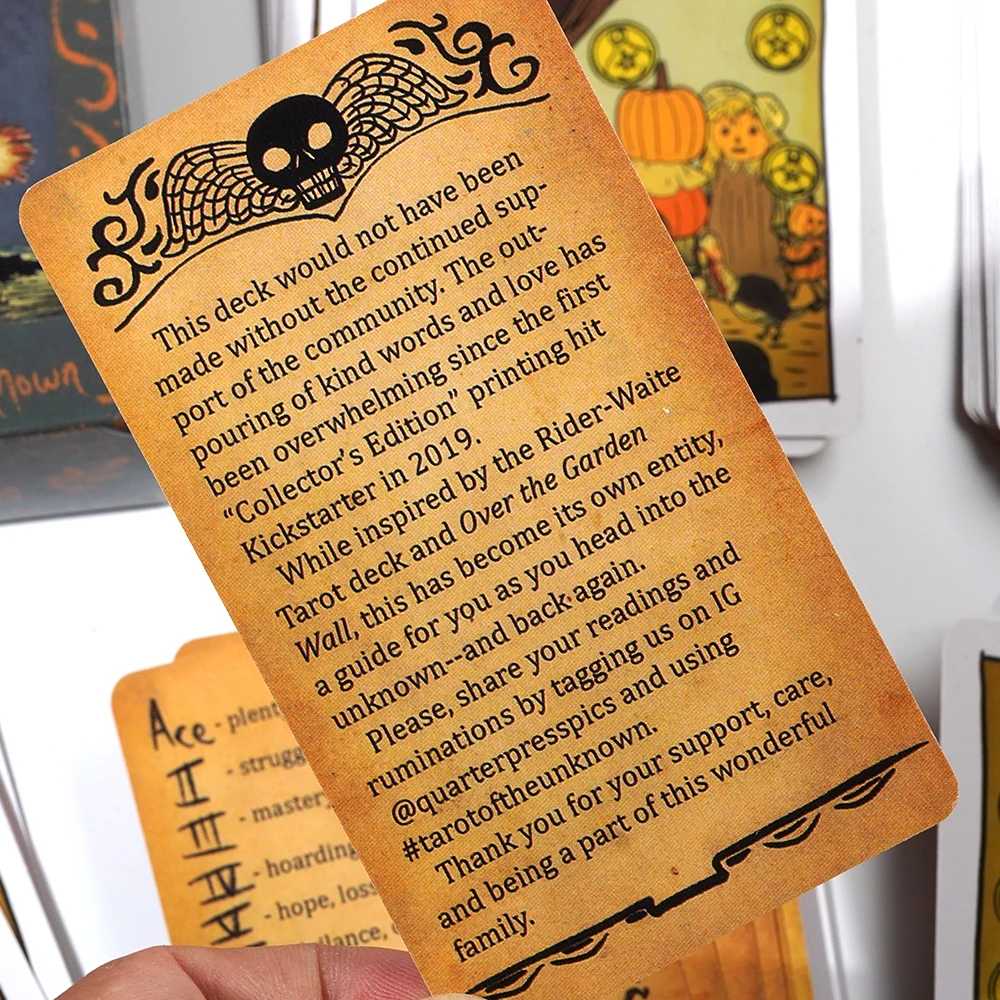 This deck would not have been
made without the continued sup-
port of the community. The out-
pouring of kind words and love has
been overwhelming since the first
“Collector’s Edition” printing hit
Kickstarter in 2019.
While inspired by the Rider-Waite
Tarot deck and Over the Garden
Wall, this has become its own entity,
a guide for you as you head into the
unknown--and back again.
Please, share your readings and
ruminations by tagging us on IG
@quarterpresspics and using
#tarotoftheunknown.
Thank you for your support, care,
and being a part of this wonderful
family.
Ace - plent
II - strugg
III - master
IV - hoarding
V - hope, loss